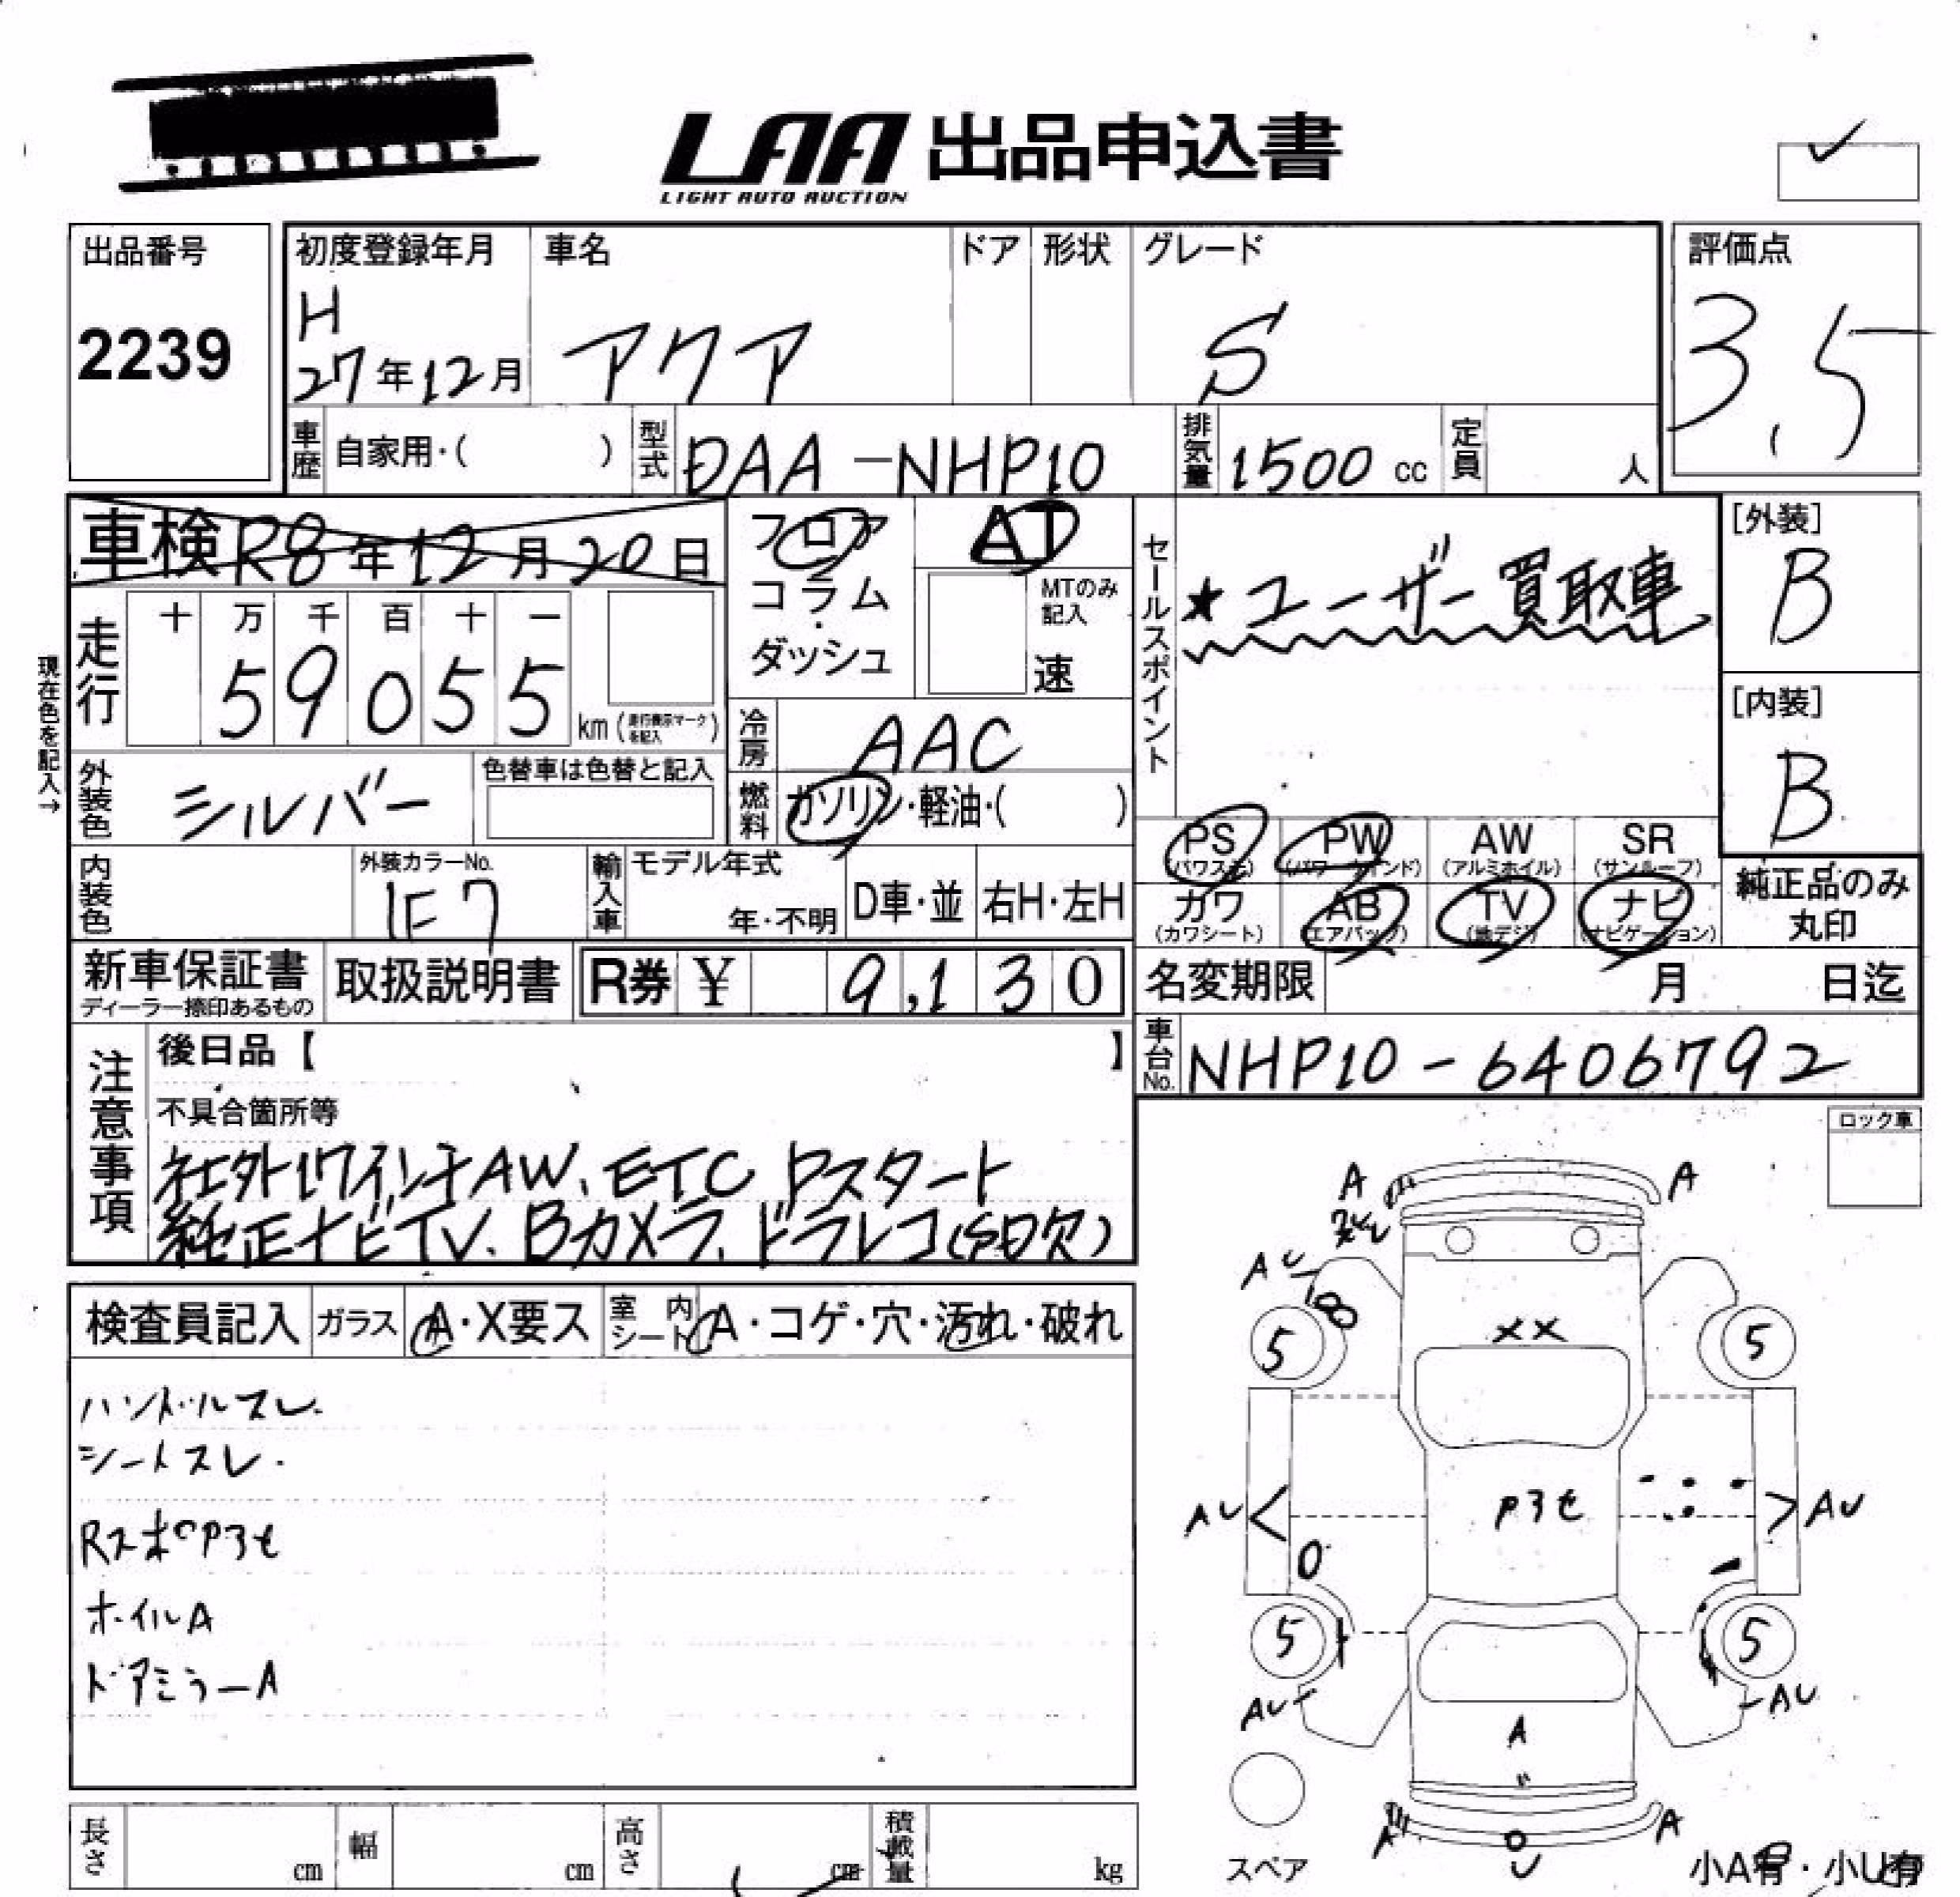 LAA 出品申込書
LIGHT AUTO AUCTION
出品番号
2239
初度登録年月
H
27年12月
車名
アクア
ドア
形状
グレード
S
評価点
3.5
車歴 自家用・( )
型式 DAA-NHP10
排気量 1500 cc
定員 人
車検 R8年12月20日
フロア
コラム
・
ダッシュ
AT
MTのみ
記入
速
セールスポイント
★ユーザー買取車
[外装]
B
[内装]
B
現在色を記入→
走行
十 万 千 百 十 一
5 9 0 5 5
km (走行表示マークを記入)
冷房 AAC
燃料 ガソリン・軽油・( )
外装色 シルバー
色替車は色替と記入
PS
(パワステ)
PW
(パワーウインド)
AW
(アルミホイル)
SR
(サンルーフ)
カワ
(カワシート)
AB
(エアバッグ)
TV
(地デジ)
ナビ
(ナビゲーション)
純正品のみ
丸印
内装色
外装カラーNo.
1F7
輸入車
モデル年式
年・不明
D車・並
右H・左H
新車保証書
ディーラー捺印あるもの
取扱説明書
R券 ¥ 9,130
名変期限 月 日迄
車台No. NHP10-6406792
注意事項
後日品【 】
不具合箇所等
社外17インチAW、ETC、Pスタート
純正ナビTV、Bカメラ、ドラレコ(SD欠)
ロック車
検査員記入
ガラス A・X要ス
室内シート A・コゲ・穴・汚れ・破れ
ハンドルスレ
シートスレ
RスポP3セ
ホイルA
ドアミラーA
A
A
AU
5
XX
5
AU
P3セ
AU
5
5
AU
AU
A
A
A
U
スペア
小A有・小U有
長さ cm
幅 cm
高さ cm
積載量 kg